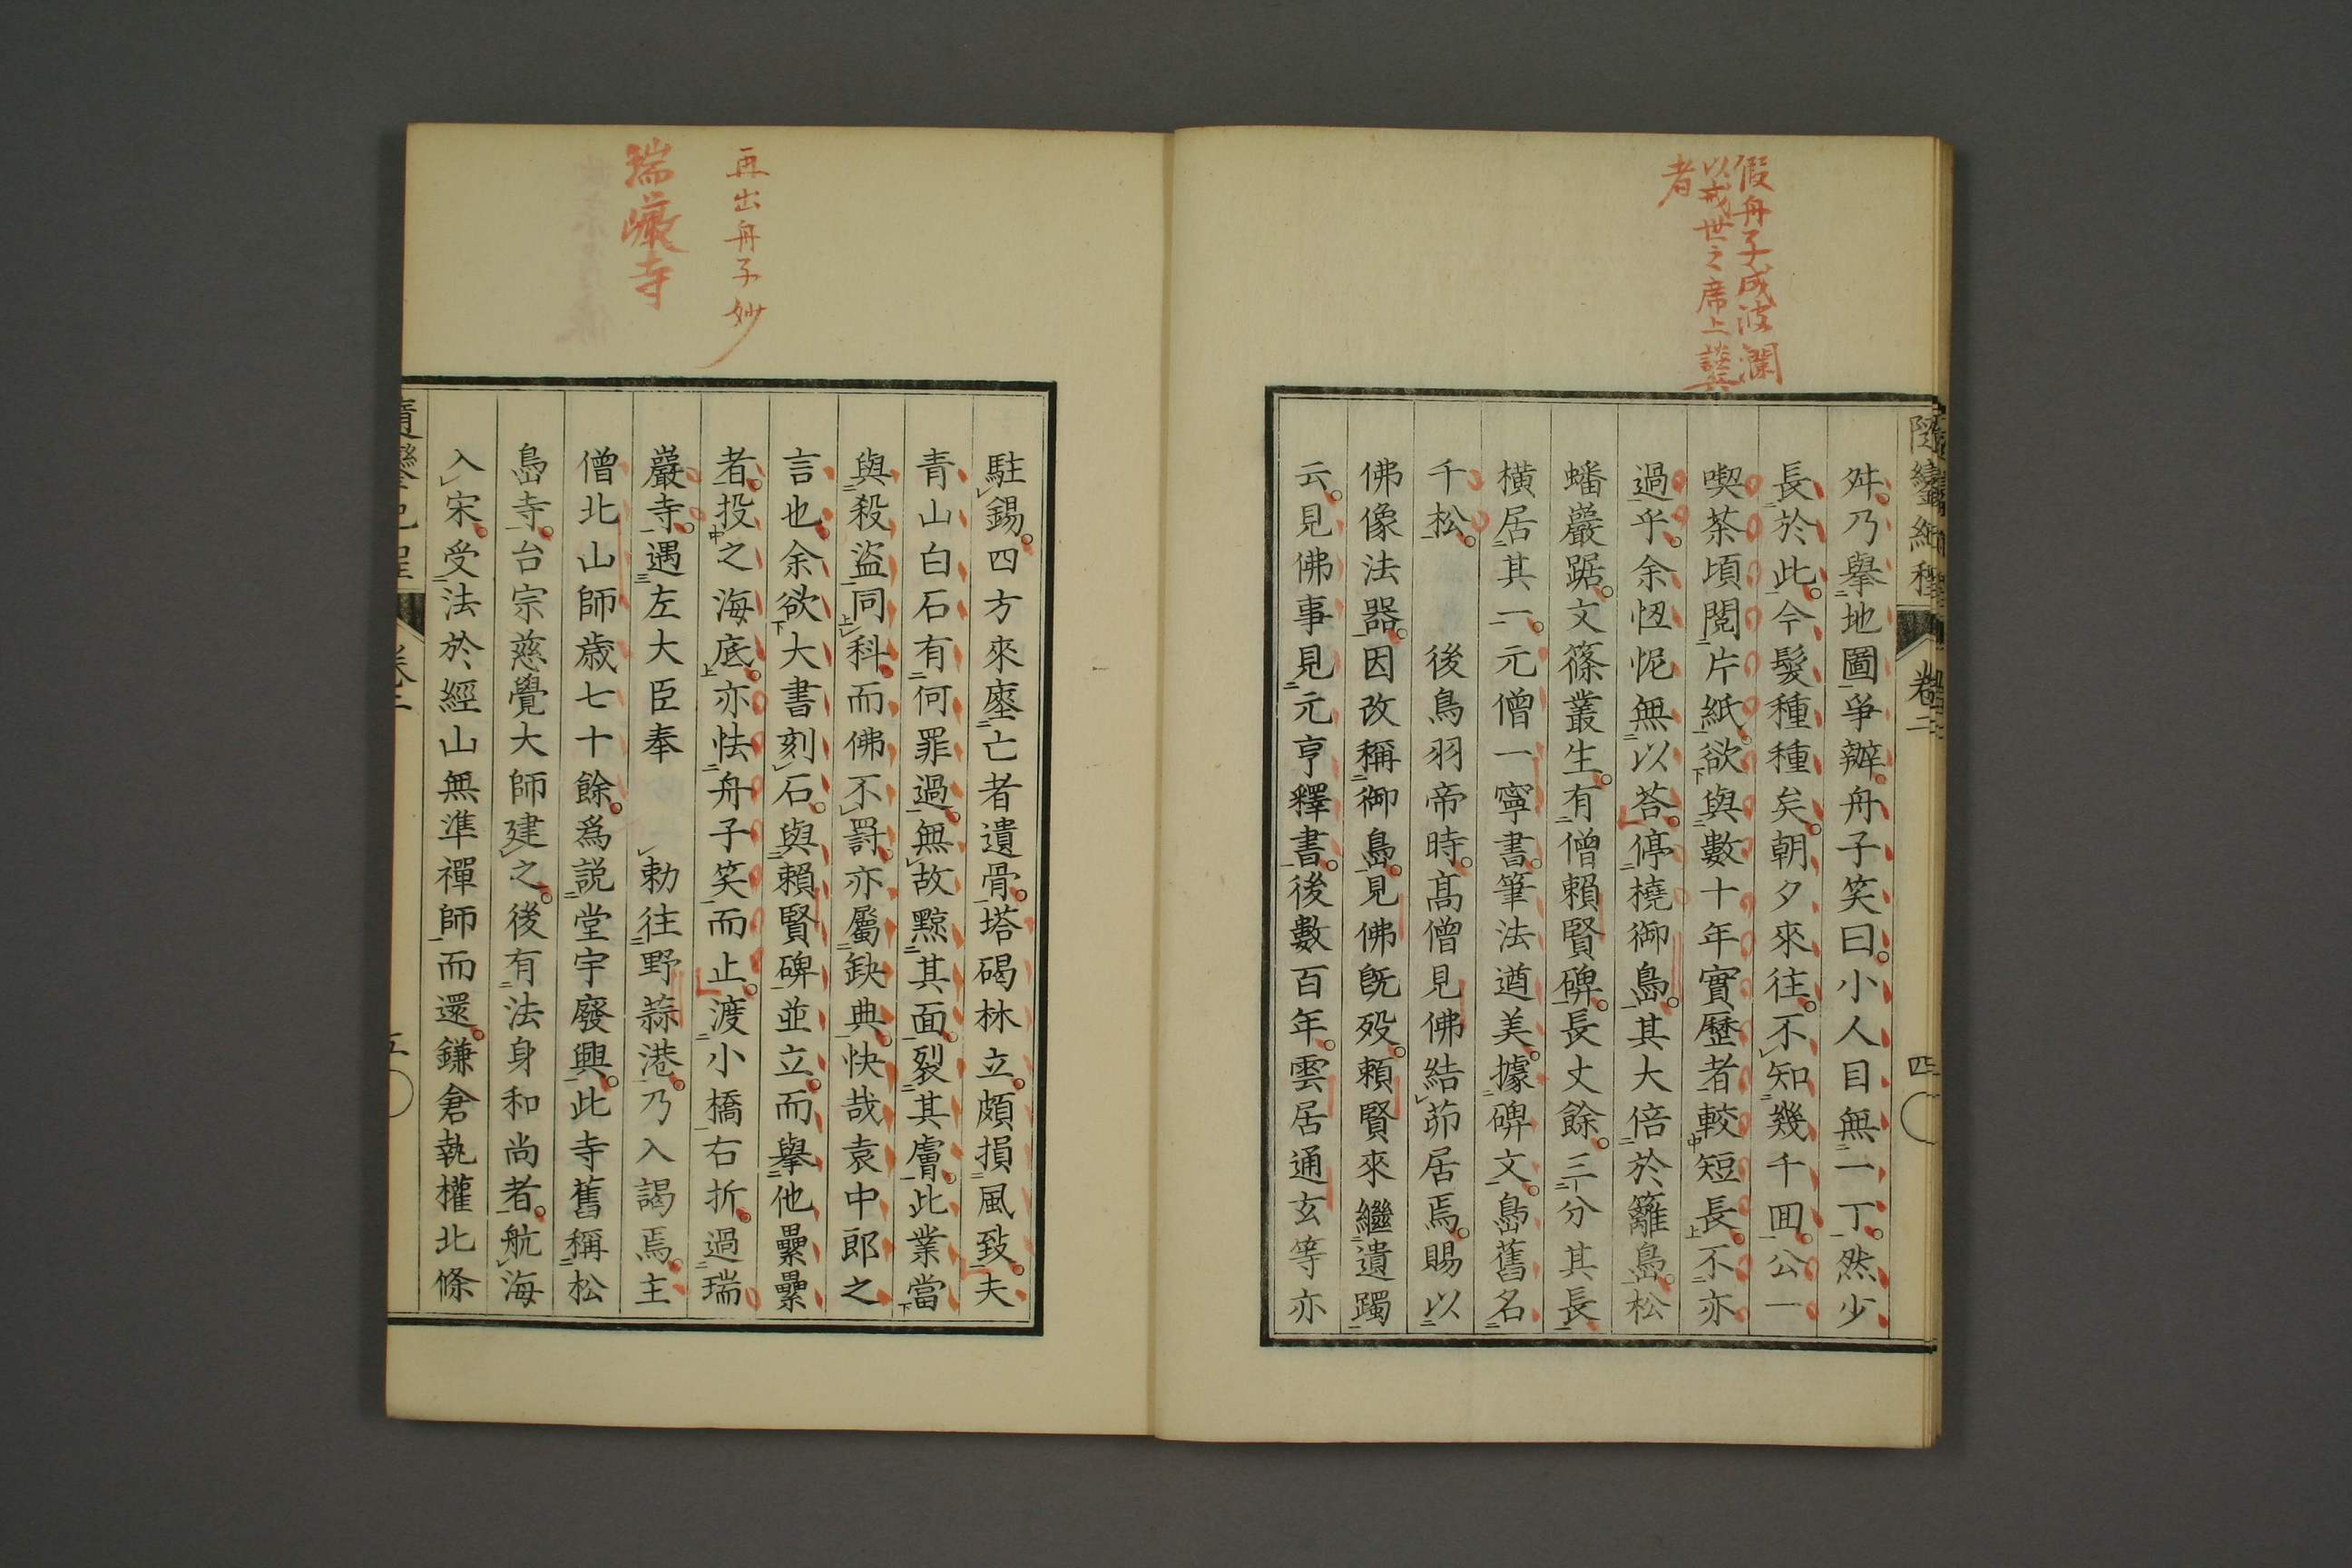 假舟子成波瀾
以戒世之席上談兵
者
隨鑾紀程
卷二
四
舛。乃擧地圖爭辦。舟子笑曰。小人目無一丁。然少
長於此。今髮種種矣。朝夕來往。不知幾千囬。公一
喫茶頃閱片紙。欲與數十年實歷者較短長。不亦
過乎。余忸怩無以荅。停橈御島。其大倍於籬島。松
蟠巖踞。文篠叢生。有僧賴賢碑。長丈餘。三分其長
横居其一。元僧一寧書。筆法遒美。據碑文。島舊名
千松。後鳥羽帝時。髙僧見佛結茆居焉。賜以
佛像法器。因改稱御島。見佛旣歿。賴賢來繼遺躅
云。見佛事見元亨釋書。後數百年。雲居通玄等亦
再出舟子妙
瑞巖寺
駐錫。四方來塟亡者遺骨。塔碣林立。頗損風致。夫
青山白石有何罪過。無故黥其面。裂其膚。此業當
與殺盜同科。而佛不罸。亦屬缺典。快哉袁中郎之
言也。余欲大書刻石。與賴賢碑並立。而擧他纍纍
者。投之海底。亦怯舟子笑而止。渡小橋右折。過瑞
巖寺。遇左大臣奉勅往野蒜港。乃入謁焉。主
僧北山師歳七十餘。爲説堂宇廢興。此寺舊稱松
島寺。台宗慈覺大師建之。後有法身和尚者。航海
入宋。受法於經山無準禪師而還。鎌倉執權北條
隨鑾紀程
卷二
五